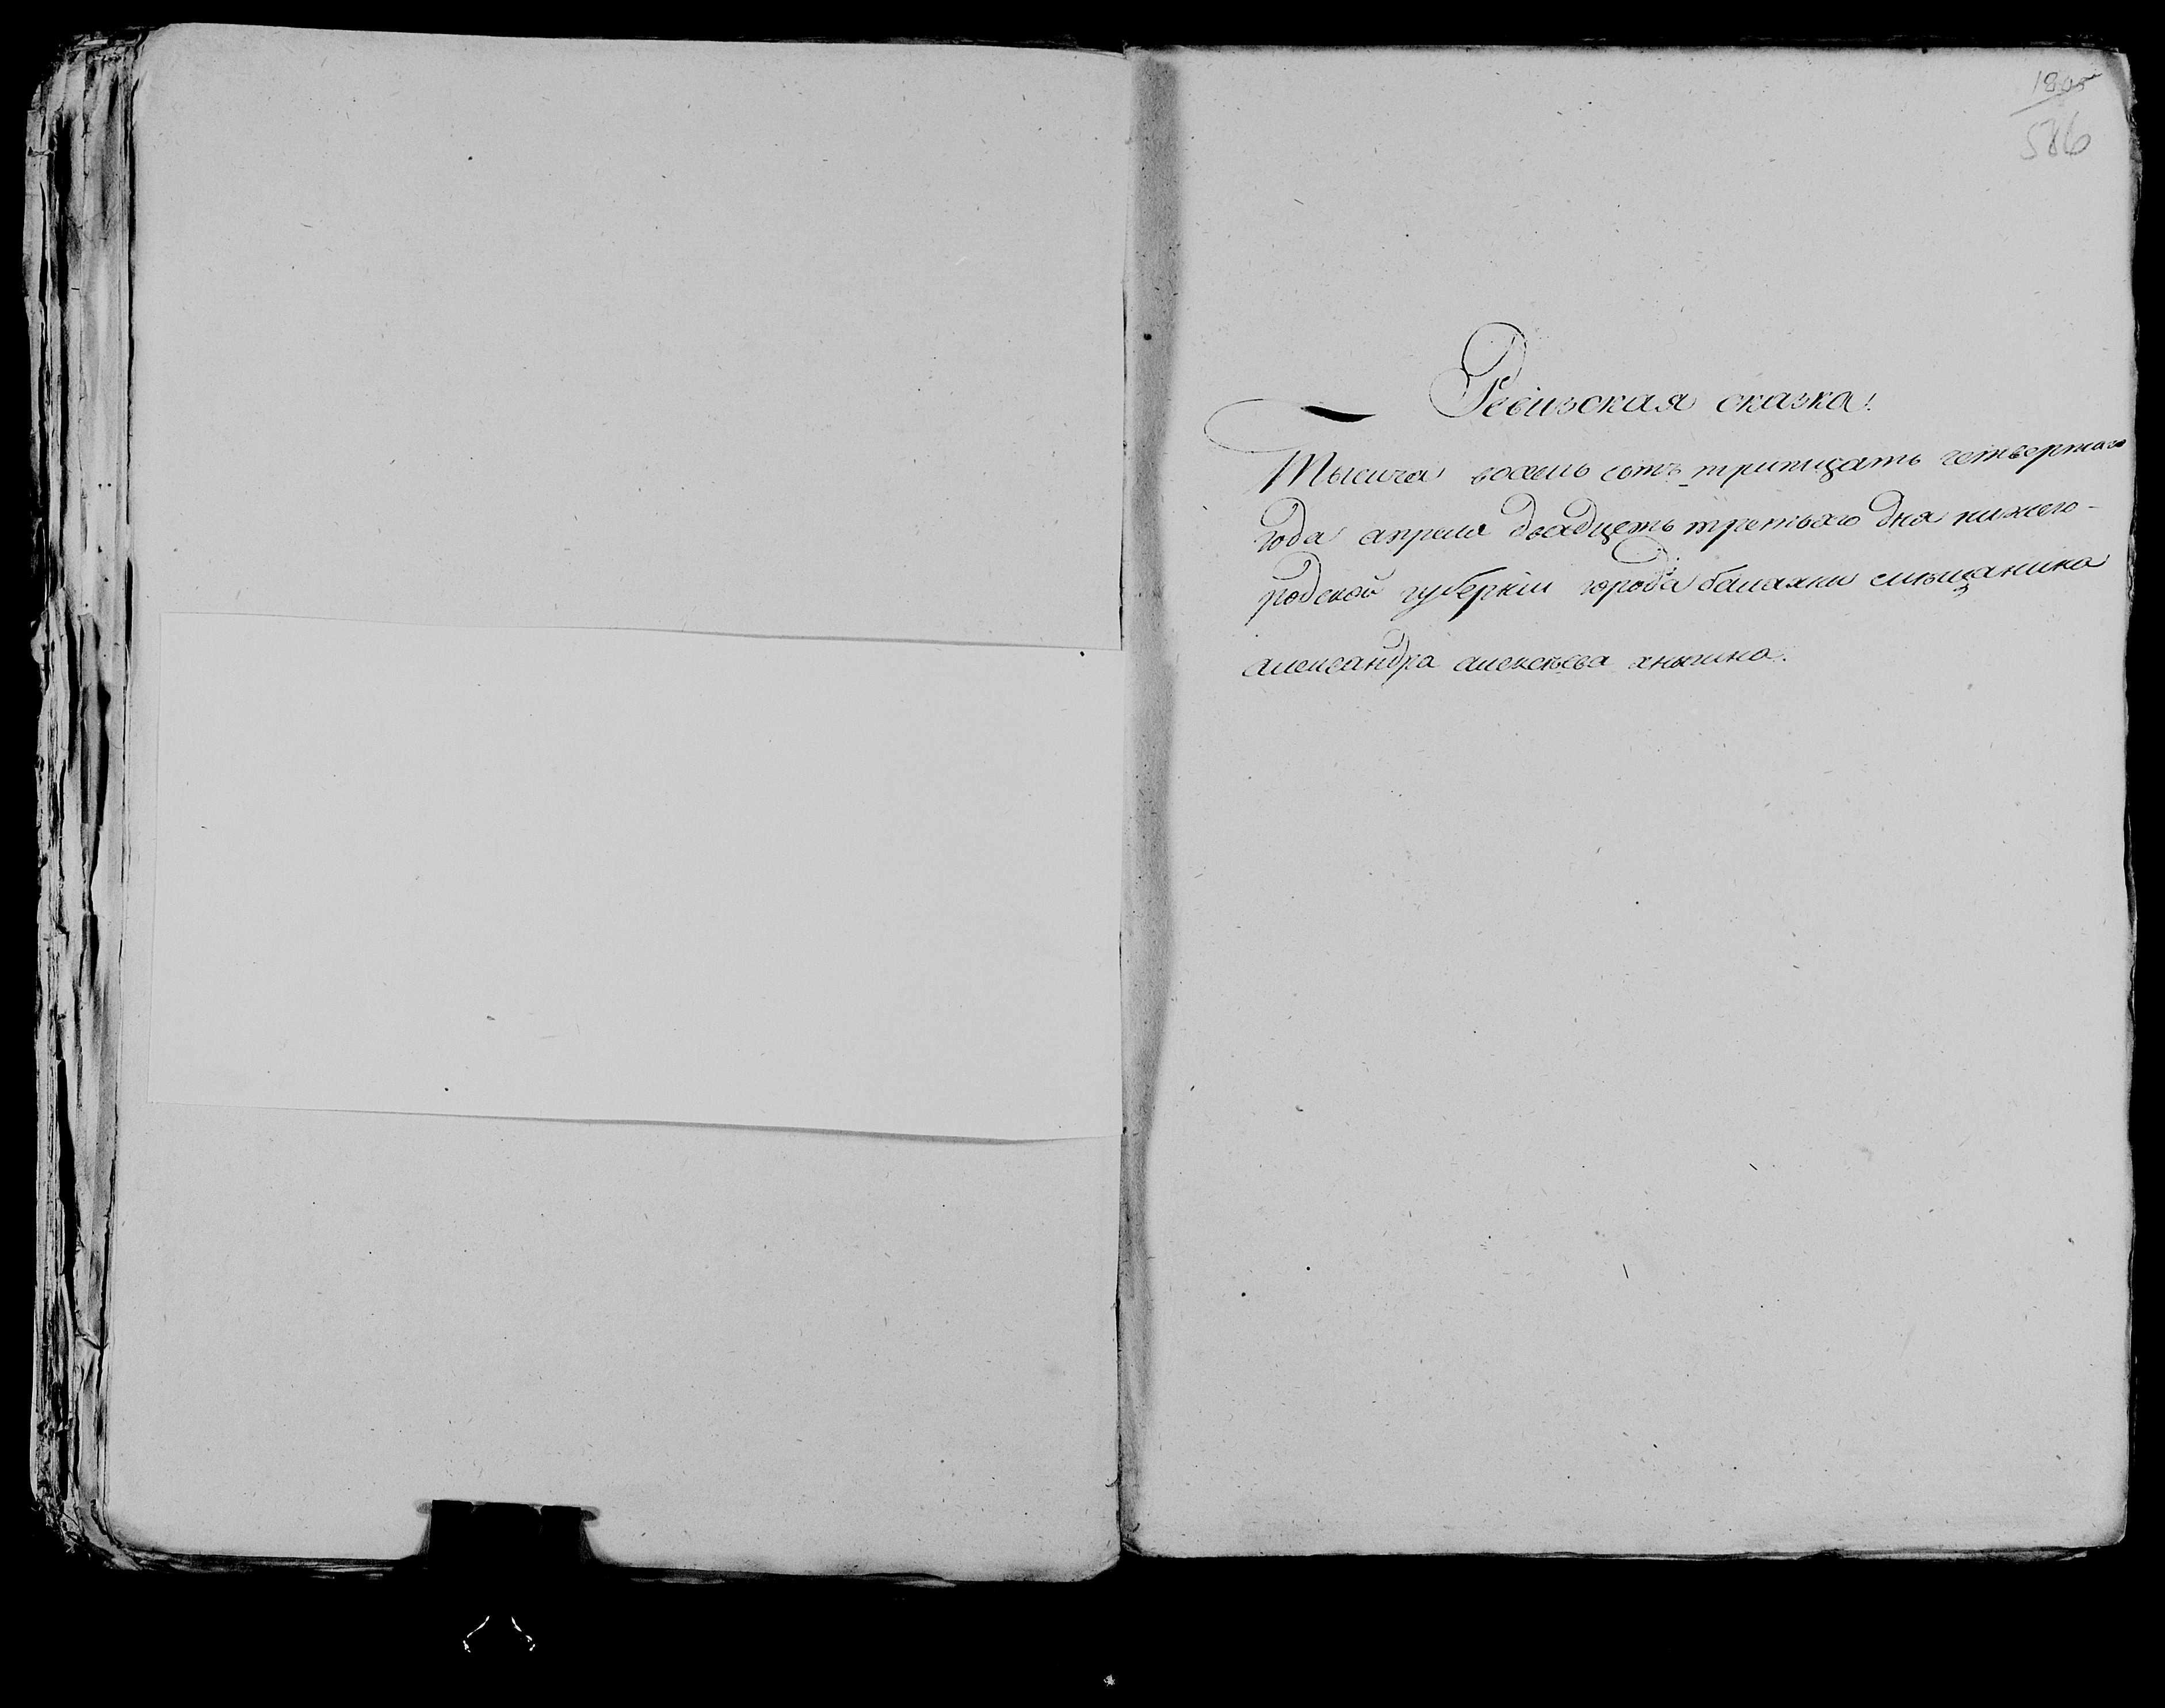 586
Ревизская сказка.
Тысяча восемь сотъ тритцать четвертаго
года апреля двадцеть третьяго дня нижего-
родской губернiи города балахны мещанина
александра алексеева